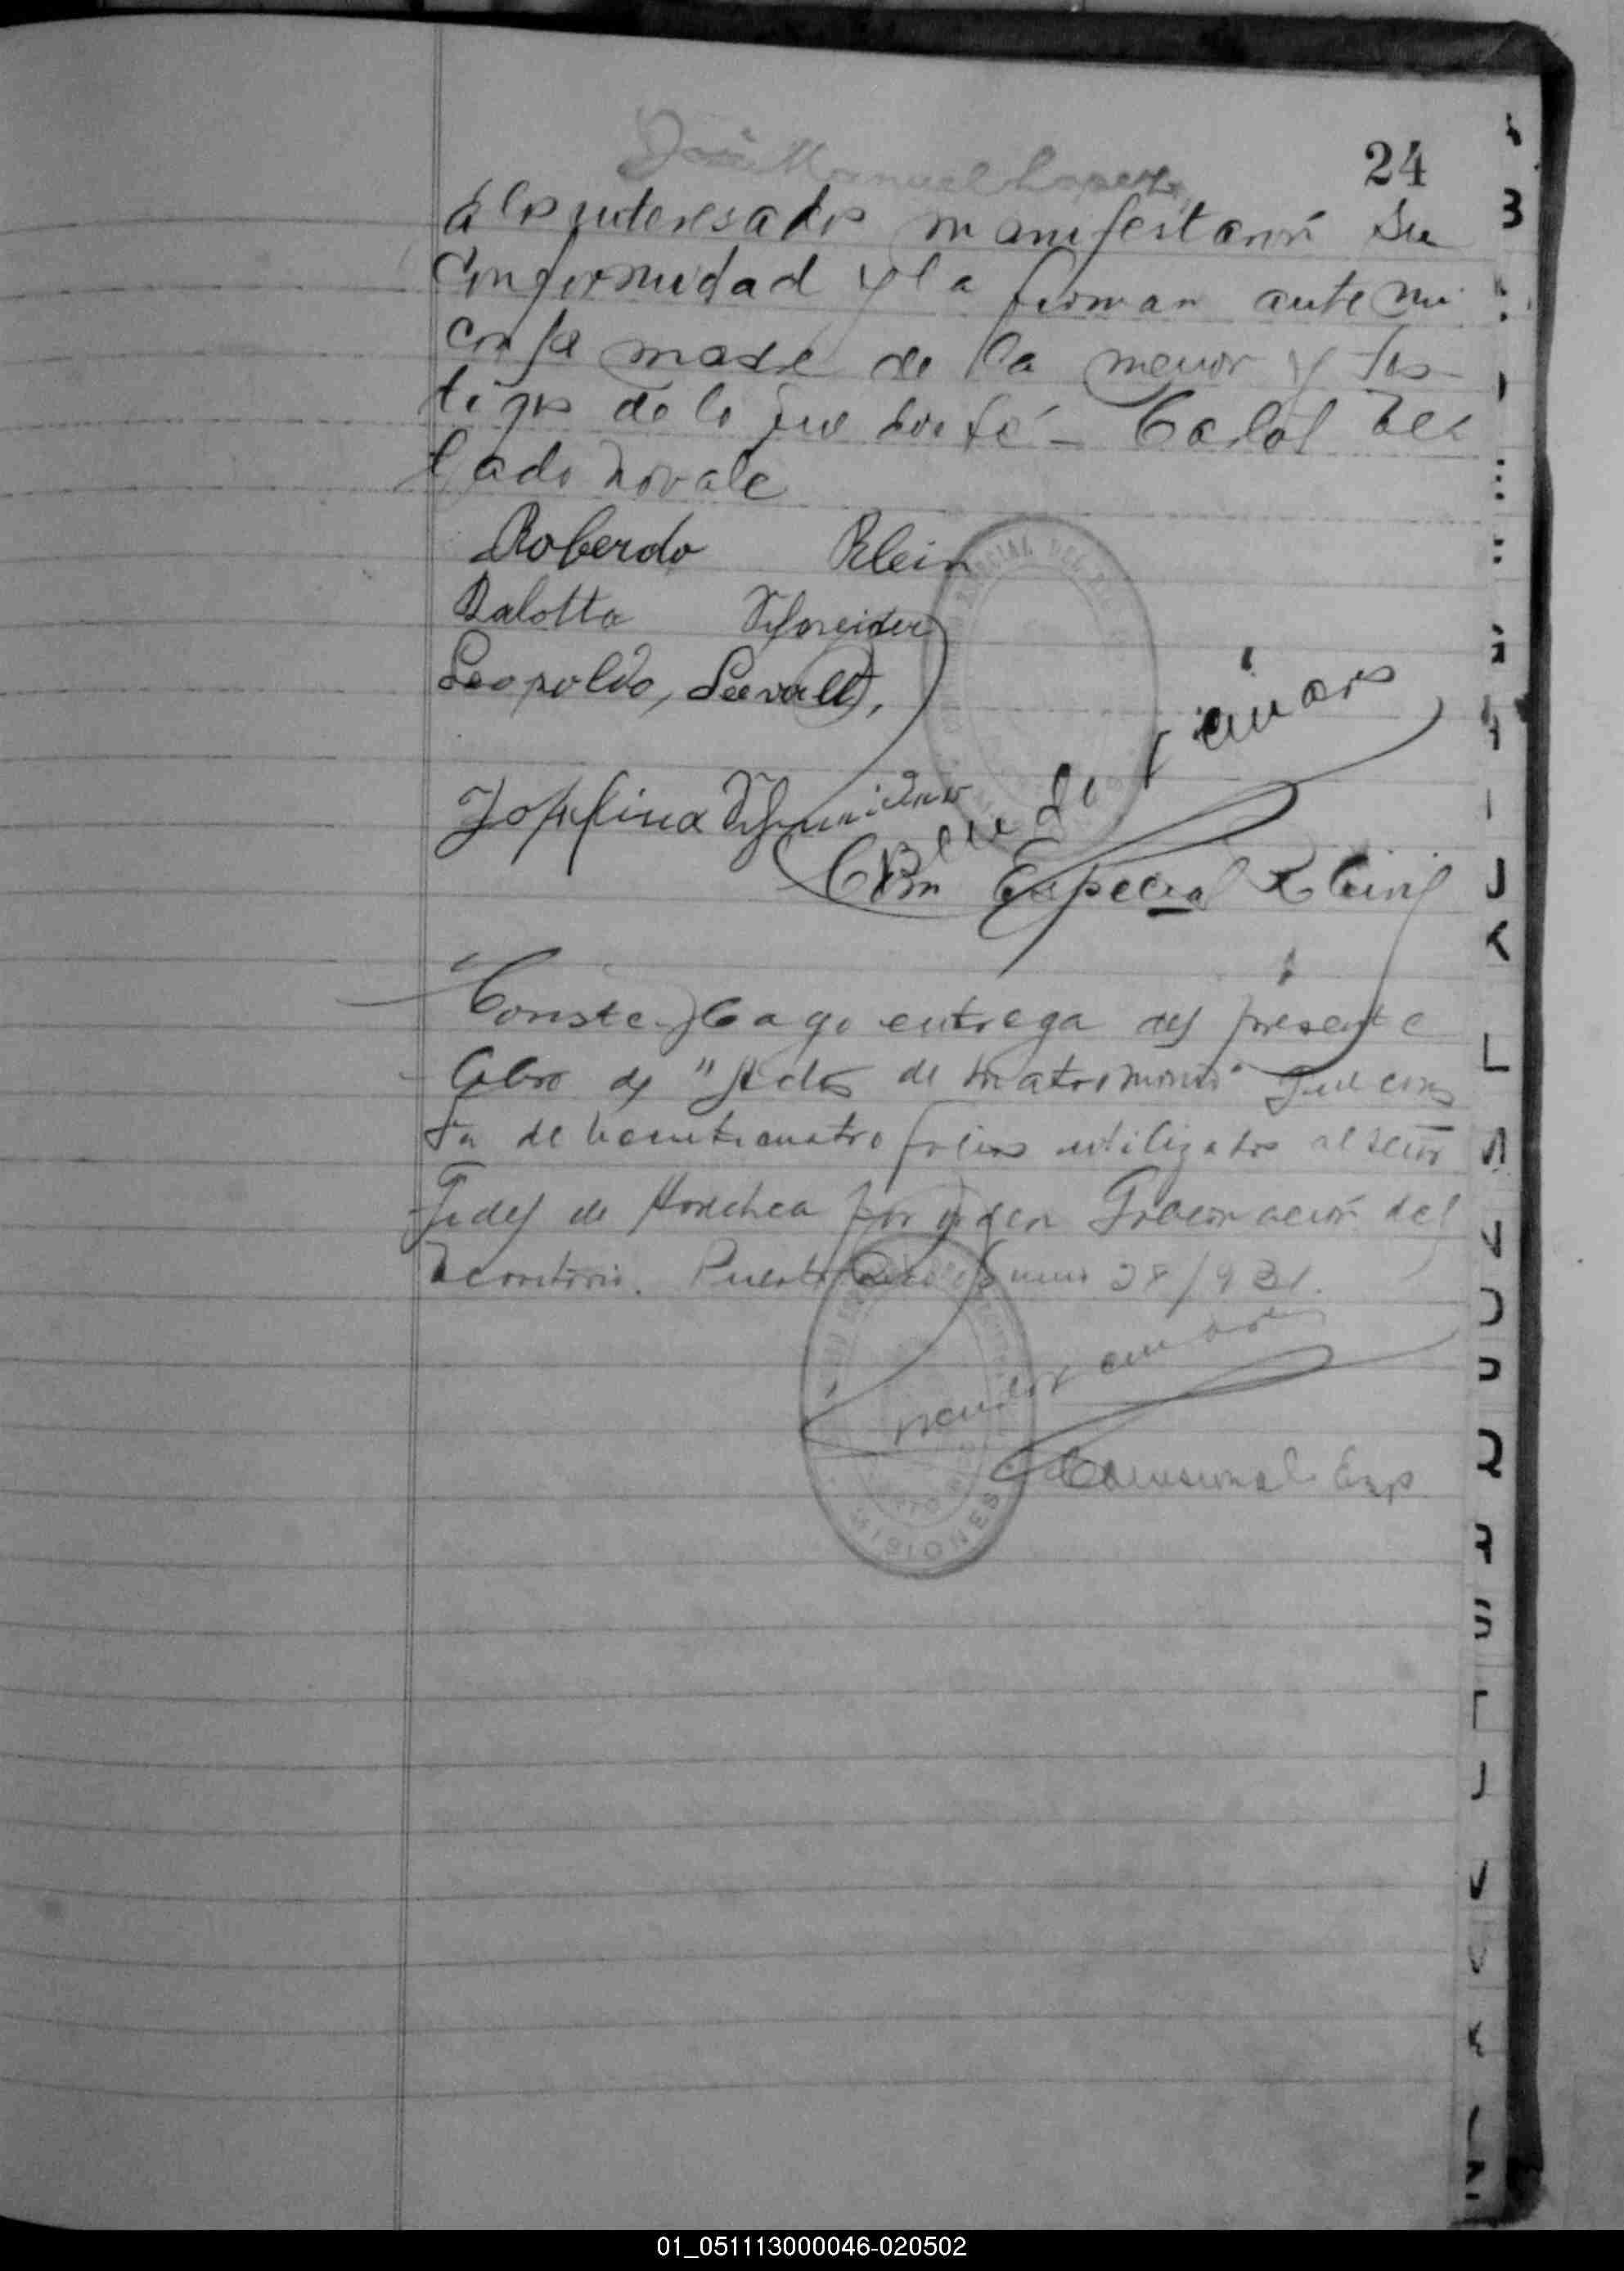 José Manuel Lopez
24
a los interesados manifestaron su
conformidad y la firman ante mi
con la madre de la menor y tes-
tigos de lo que doi fé - Carlos
tado no vale
Roberdo Klein
Kalotta Schneider
Leopoldo, Seewald,
Josefina Schneider
Especial R. Civil
Conste: Hago entrega del presente
Libro de "Actas de Matrimonio" que cons
ta de veinticuatro folios utilizados al señor
Juez de por orden Gobernación del
Territorio. Puerto Rico Junio 28/931.
Comisional Esp
MISIONES
01_051113000046-020502